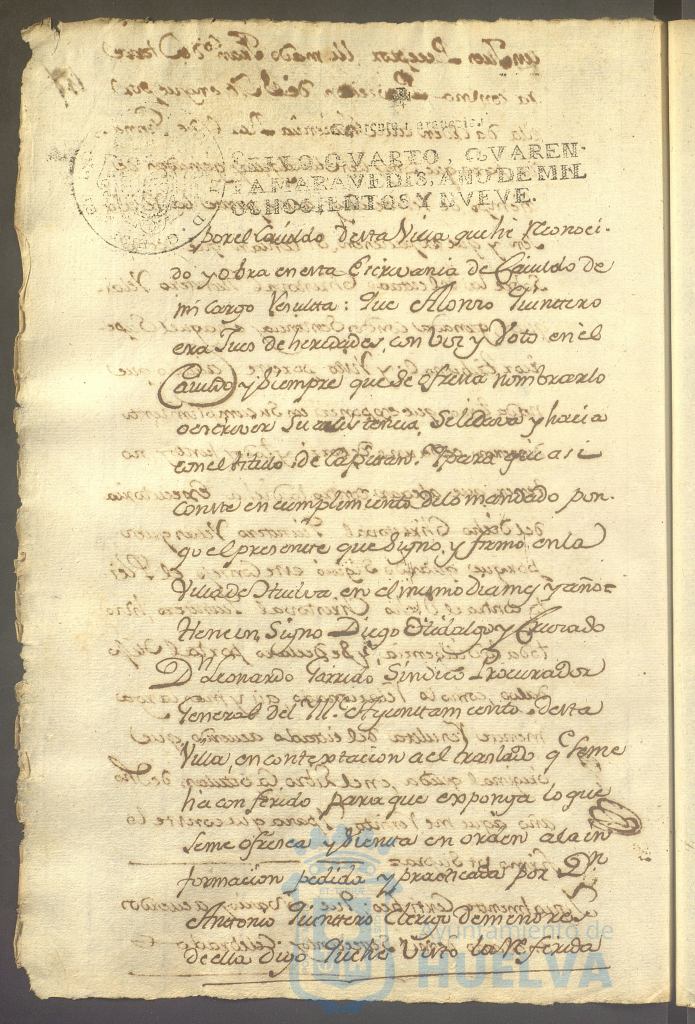 SELLO QVARTO, QVAREN-
TA MARAVEDIS, AÑO DE MIL
OCHOCIENTOS Y NVEVE.
por el Cavildo desta Villa que hé reconoci-
do y obra en esta Escrivania de Cavildo de
mi cargo resulta: Que Alonso Quintero
era Jues de heredades, con voz y voto en el
Cavildo y siempre que se ofresia nombrarlo
o escriver su asistencia, se le dava y hacia
con el titulo de Capitan. Y para que asi
conste en cumplimiento de lo mandado pon-
go el presente que signo, y firmo en la
Villa de Huelva en el mismo dia mes y año=
Tiene un Signo Diego Hidalgo y Currado
Dn Leonardo Garrido Sindico Procurador
General del Ille. Ayuntamiento desta
Villa, en contextacion a el traslado qe se me
ha conferido para que exponga lo que
se me ofresca y sienta en orden a la in
formacion pedida y practicada por Dn
Antonio Quintero Clerigo de menores
de ella Dijo Que he visto la referida
Ayuntamiento de
HUELVA